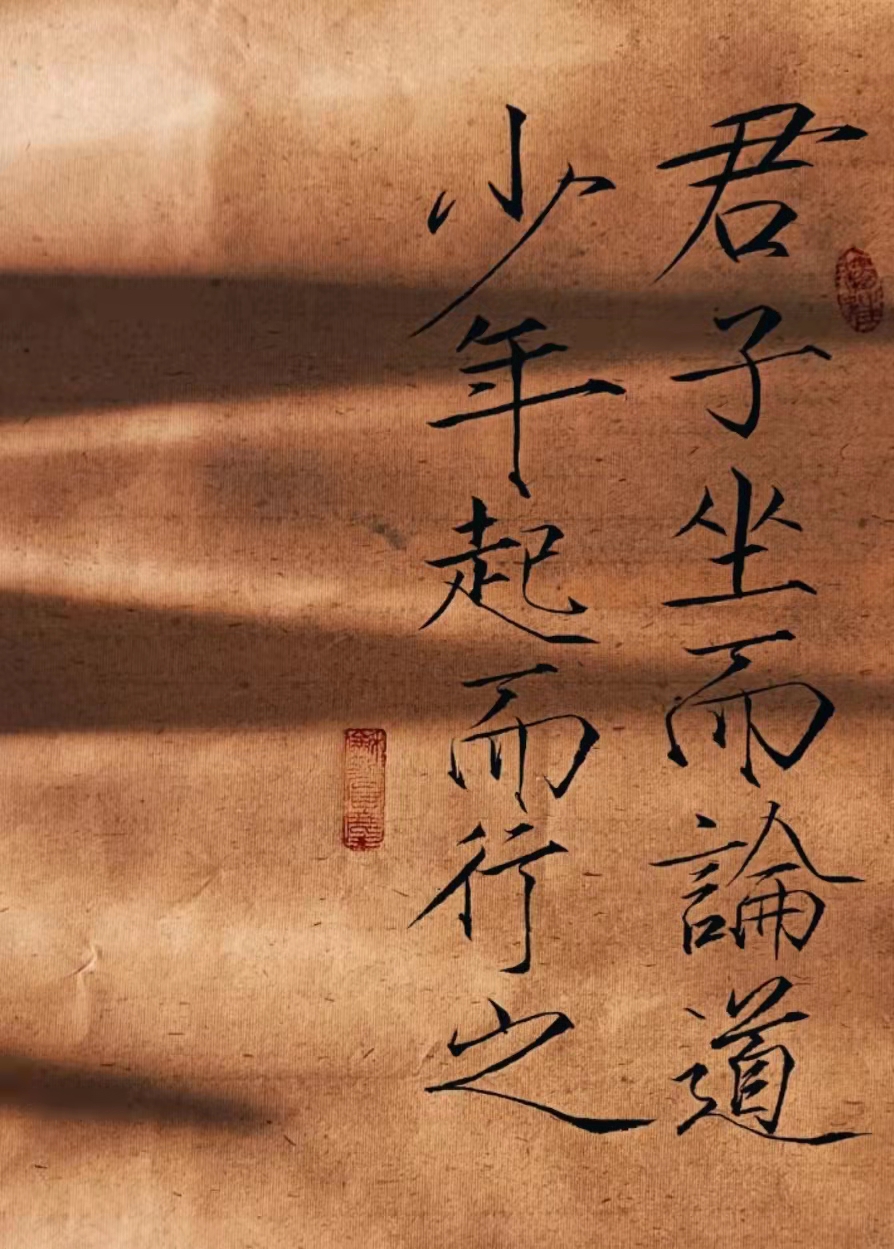 君子坐而論道
少年起而行之